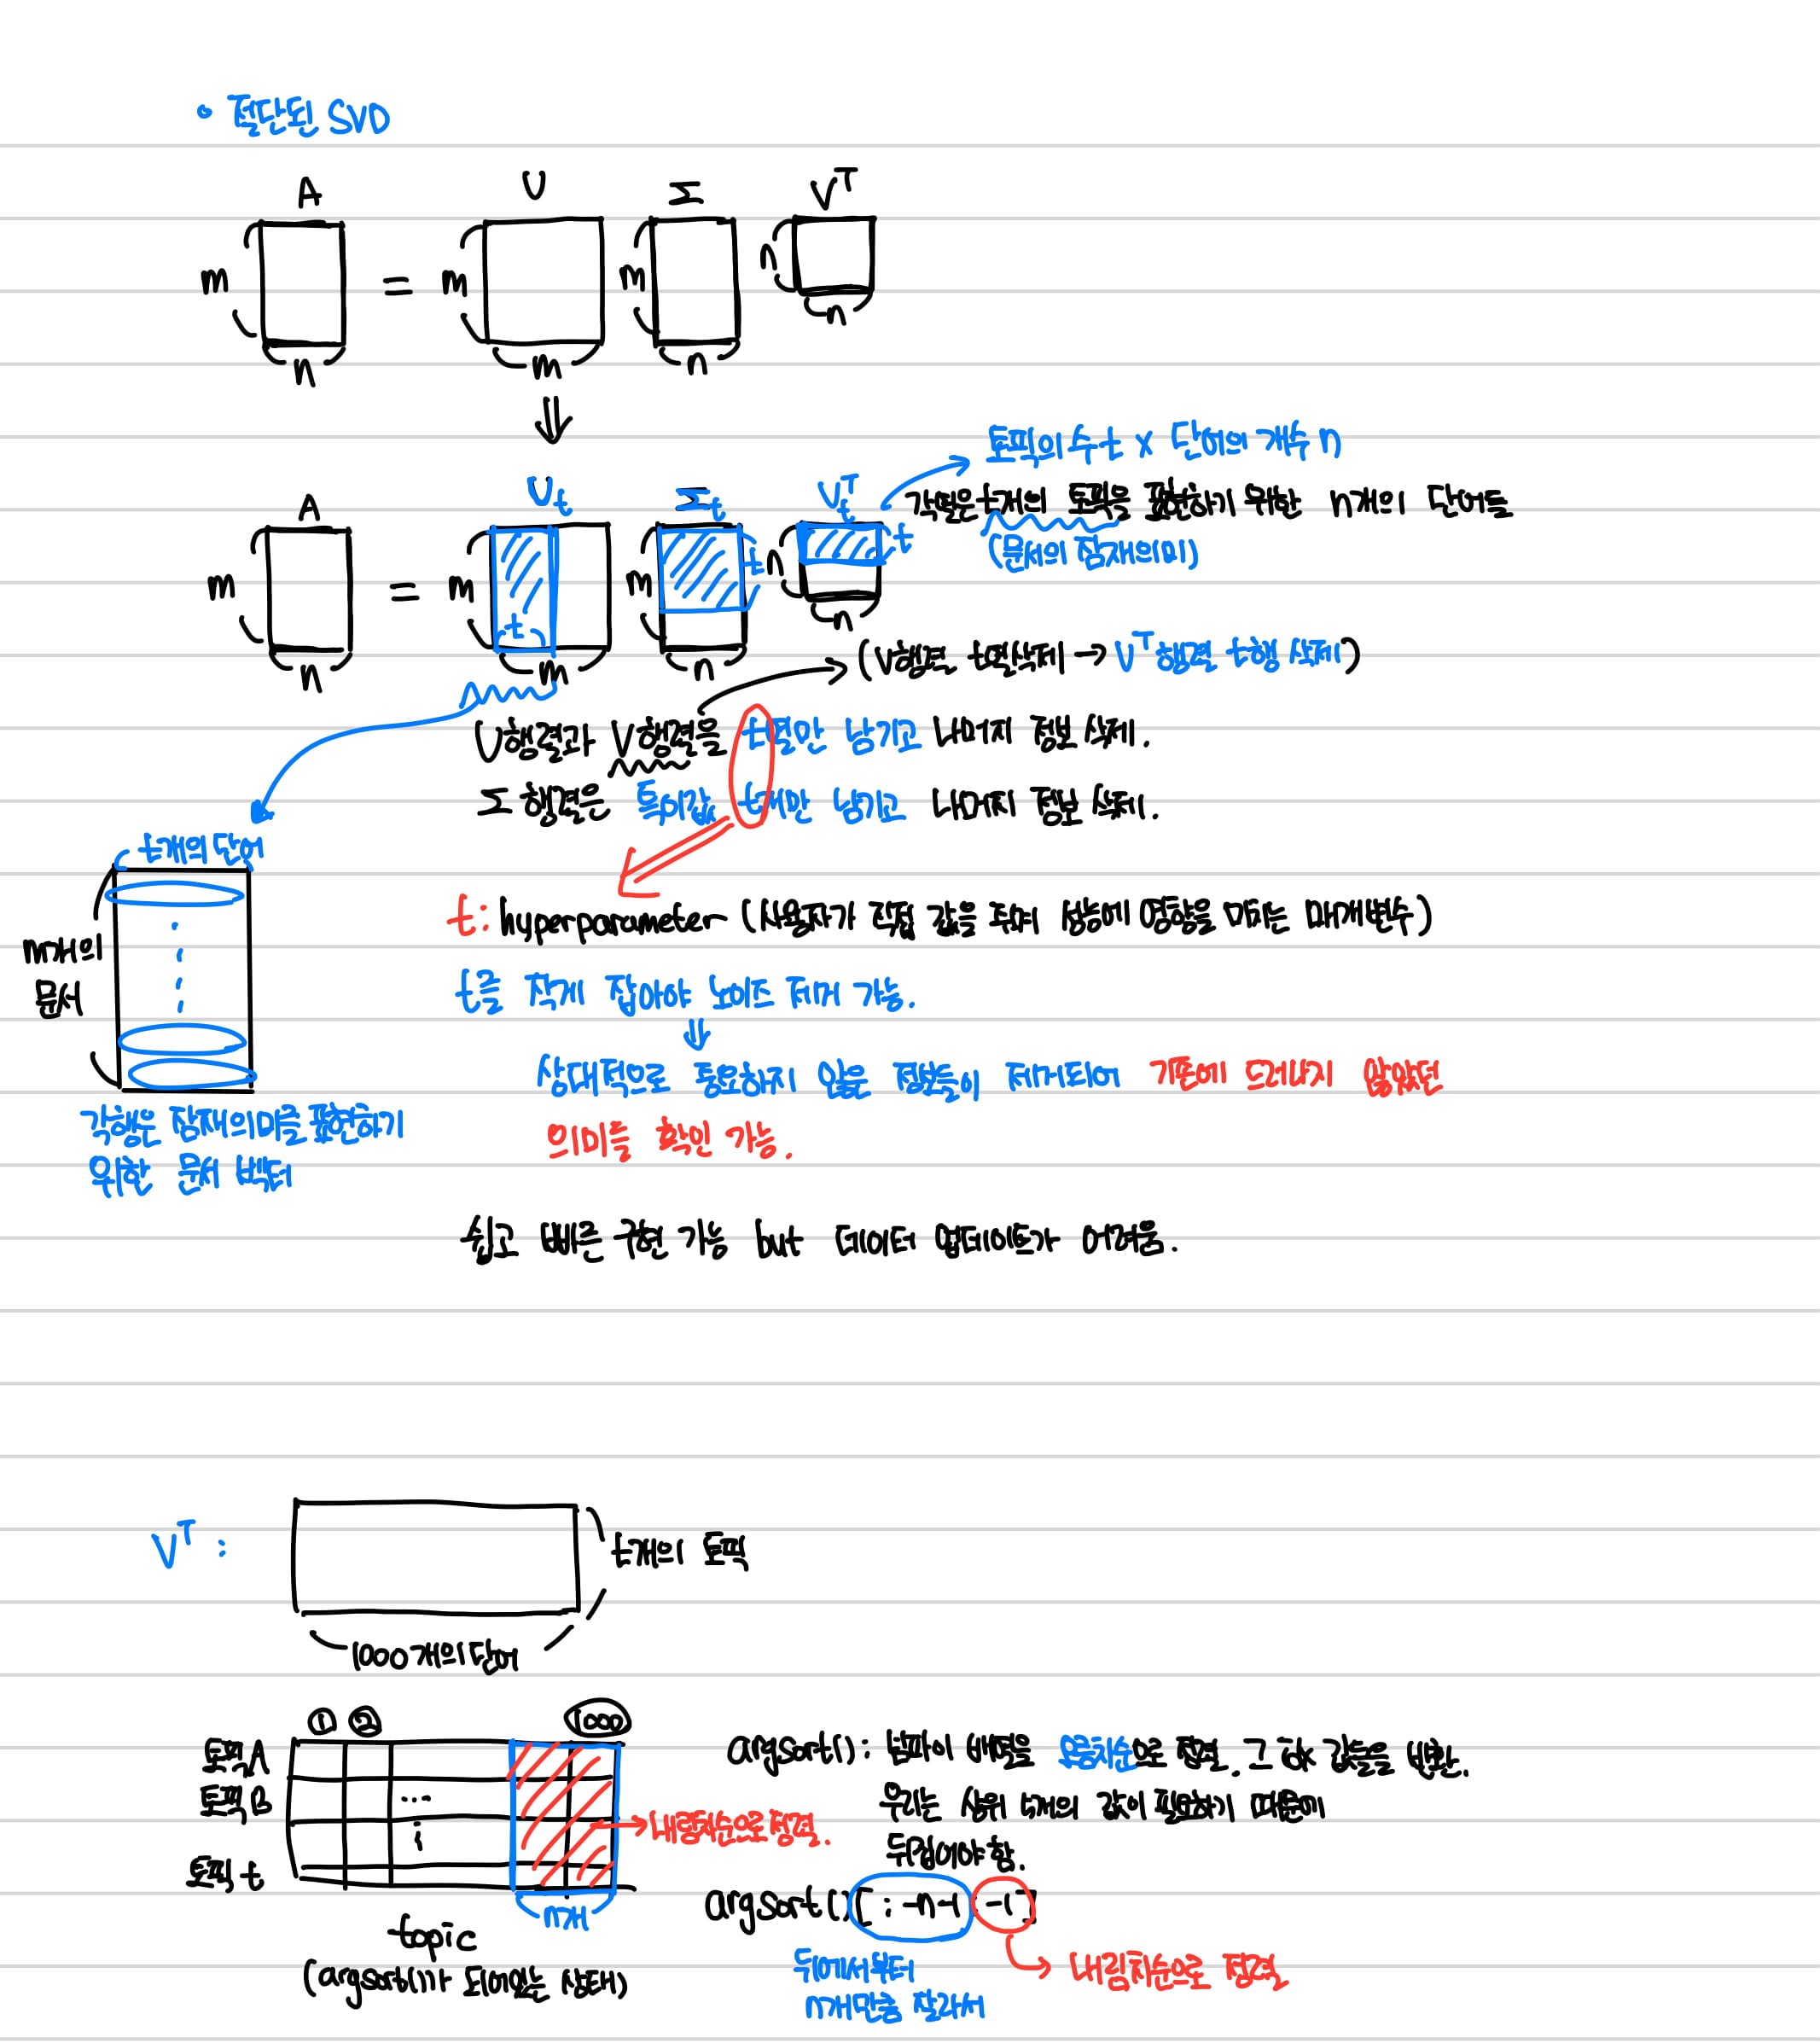 • 절단된 SVD
A U Σ V^T
m = m m n
n m n n
⇓
토픽의 수 t x 단어의 개수 n
A U_t Σ_t V_t^T 각 열은 t개의 토픽을 표현하기 위한 n개의 단어들
(문서의 잠재의미)
m = m m t n t
t
n m n n
(V행렬 t열삭제 → V^T행렬 t행 삭제)
U행렬과 V행렬을 t열만 남기고 나머지 정보 삭제.
Σ행렬은 특이값 t개만 남기고 나머지 정보 삭제.
t개의 단어
m개의
문서
각 행은 잠재의미를 표현하기
위한 문서 벡터
t: hyperparameter (사용자가 직접 값을 주며 성능에 영향을 미치는 매개변수)
t를 작게 잡아야 노이즈 제거 가능.
⇓
상대적으로 중요하지 않은 정보들이 제거되어 기존에 드러나지 않았던
의미를 확인 가능.
쉽고 빠른 구현 가능 but 데이터 업데이트가 어려움.
V^T :
t개의 토픽
1000개의 단어
① ② 1000
토픽 A
토픽 B ...
토픽 t
→ 내림차순으로 정렬.
n개
topic
(argsort()가 되어있는 상태)
argsort() : 넘파이 배열을 오름차순으로 정렬. 그 idx 값들을 반환.
우리는 상위 n개의 값이 필요하기 때문에
뒤집어야 함.
argsort()[ : -n-1 : -1]
뒤에서부터
n개만큼 잘라서
→ 내림차순으로 정렬